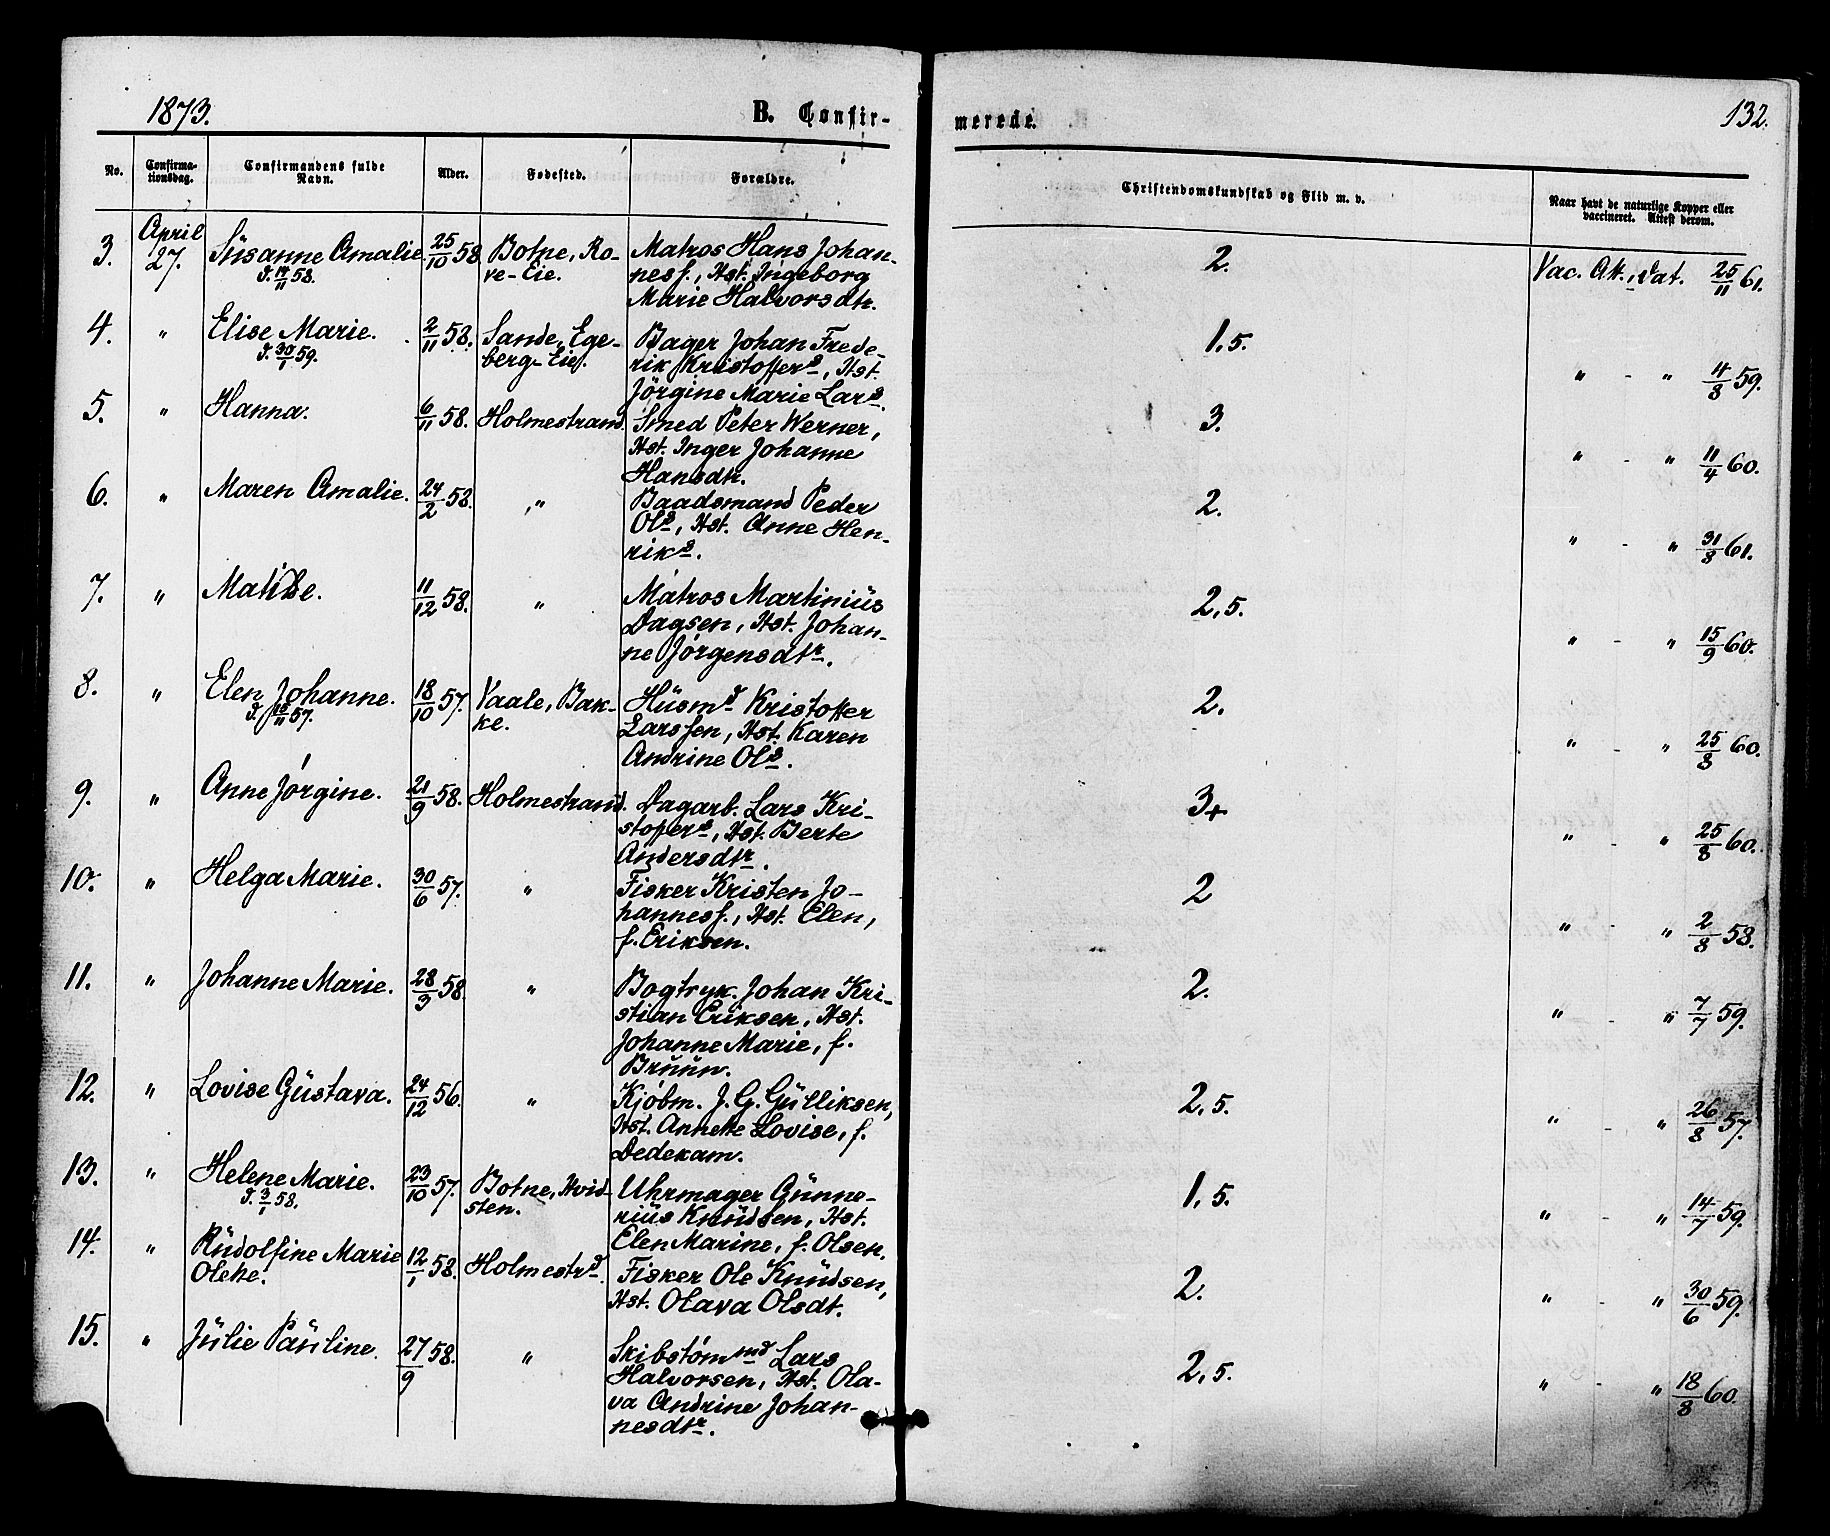 1873.
B. Confir-
merede.
132.
No.
Confirma-
tionsdag.
Confirmandens fulde
Navn.
Alder.
Fødested.
Forældre.
Christendomskundskab og Flid m. v.
Naar havt de naturlige Kopper eller
vaccineret. Attest derom.
3. April 27. Susanne Amalie. 25/10 58. Botne, Ro-
ve-Eie.
d. 14/11 58.
Matros Hans Johan-
nesf., Hst. Ingeborg
Marie Halvorsdtr.
2.
Vac. Att., dat. 25/11 61.
4. " Elise Marie. 2/11 58. Sande, Ege-
berg-Eie.
d. 30/1 59.
Bager Johan Frede-
rik Kristoffers, Hst.
Jörgine Marie Lars.
1,5.
" - " 4/8 59.
5. " Hanna. 6/11 58. Holmestrand.
Smed Peter Werner,
Hst. Inger Johanne
Hansdtr.
3.
" - " 11/4 60.
6. " Maren Amalie. 24/2 58. "
Baadsmand Peder
Ols, Hst. Anne Hen-
riks.
2.
" - " 31/8 61.
7. " Matilde. 11/12 58. "
Matros Martinius
Dagsen, Hst. Johan-
ne Jørgensdtr.
2,5.
" - " 15/9 60.
8. " Elen Johanne. 18/10 57. Vaale, Bak-
ke.
d. 15/11 57.
Husmd Kristoffer
Larssen, Hst. Karen
Andrine Ols.
2.
" - " 25/8 60.
9. " Anne Jørgine. 21/9 58. Holmestrand.
Dagarb. Lars Kri-
stofers, Hst. Berte
Andersdtr.
3+
" - " 25/8 60.
10. " Helga Marie. 30/6 57. "
Fisker Kristen Jo-
hannesf., Hst. Elen,
f. Eriksen.
2
" - " 2/8 58.
11. " Johanne Marie. 28/3 58. "
Bogtryk. Johan Kri-
stian Eriksen, Hst.
Johanne Marie, f.
Bruun.
2.
" - " 7/7 59.
12. " Lovise Gustava. 24/12 56. "
Kjøbm. J. G. Gulliksen,
Hst. Annette Lovise, f.
Dedekam.
2,5.
" - " 26/8 57.
13. " Helene Marie. 23/10 57. Botne, Hvid-
sten.
d. 3/1 58.
Uhrmager Gunne-
rius Knudsen, Hst.
Elen Marine, f. Olsen.
1,5.
" - " 14/7 59.
14. " Rudolfine Marie
Olette. 12/1 58. Holmestrd.
Fisker Ole Knudsen,
Hst. Olava Olsdt.
2.
" - " 30/6 59.
15. " Julie Pauline. 27/9 58. "
Skibstømmd Lars
Halvorsen, Hst. Ola-
va Andrine Johan-
nesdtr.
2,5.
" - " 18/8 60.